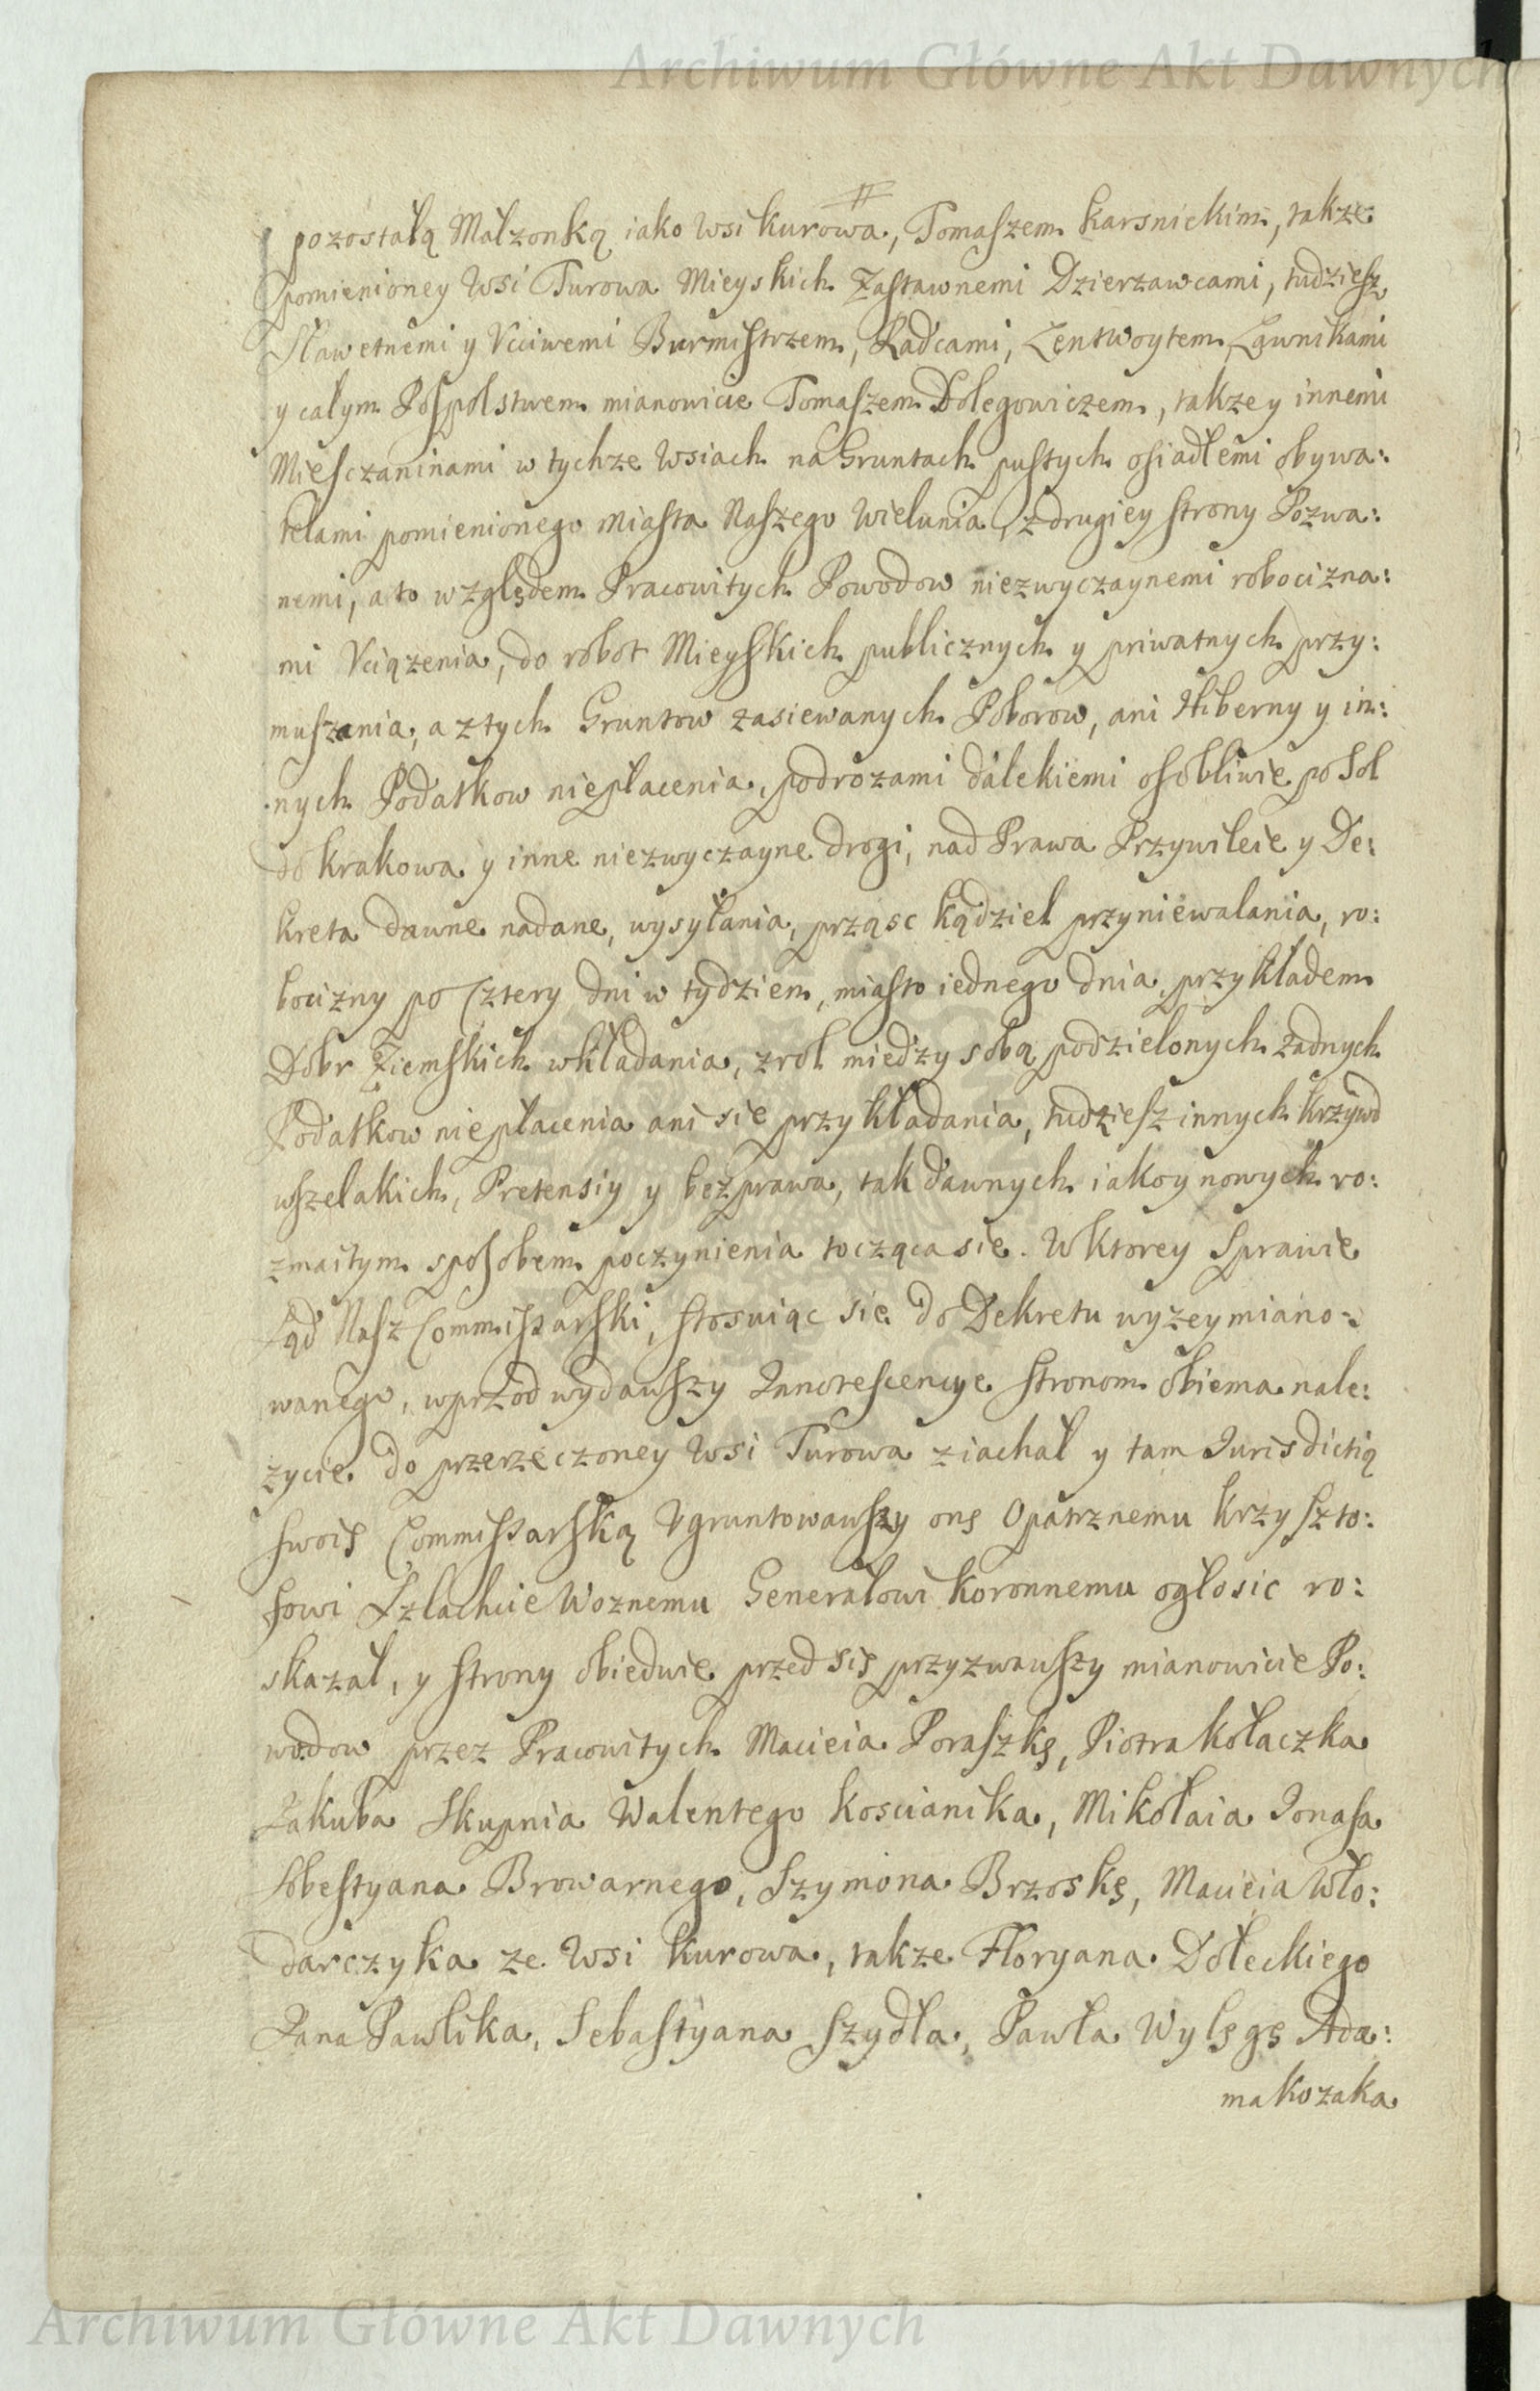 Archiwum Główne Akt Dawnych
pozostałą Małzonką iako Wsi Kurowa, Tomaszem Karsnickim, takze
pomienioney Wsi Turowa Mieyskich Zastawnemi Dzierzawcami, tudziesz
Sławetnemi y Vcciwemi Burmistrzem, Radcami, Lentwoytem, Ławnikami
y całym Pospolstwem mianowicie Tomaszem Dolegowiczem, takze y innemi
Miesczaninami w tychze Wsiach na Gruntach pustych osiadłemi obywa:
telami pomienionego Miasta Naszego Wielunia, z drugiey strony Pozwa:
nemi, a to względem Pracowitych Powodow niezwyczaynemi robocizna:
mi Vciązenia, do robot Mieyskich publicznych y priwatnych przy:
muszania, a z tych Gruntow zasiewanych Poborow, ani Hiberny y in:
nych Podatkow niepłacenia, podrozami dalekiemi osobliwie po Sol
do Krakowa y inne niezwyczayne drogi, nad Prawa Przywileie y De:
kreta dawne nadane, wysyłania, prząsc kądziel przyniewalania, ro:
bocizny po Cztery dni w tydzien, miasto iednego dnia, przykładem
Dobr Ziemskich wkładania, z rol między sobą podzielonych zadnych
Podatkow niepłacenia ani sie przykładania, tudziesz innych Krzywd
wszelakich, Pretensiy y bezprawa, tak dawnych iako y nowych ro:
zmaitym sposobem poczynienia tocząca sie. W Ktorey Sprawie
Sąd Nasz Commissarski, stosuiąc sie do Dekretu wyzey miano:
wanego, wprzod wydawszy Innotescencye stronom obiema nale:
zycie do przerzeczoney Wsi Turowa ziachał y tam Jurisdictią
swoię Commissarską Vgruntowawszy onę Opatrznemu Krzyszto:
fowi Szlachcie Woznemu Generałowi Koronnemu ogłosic ro:
skazał, y strony obiedwie przed się przyzwawszy mianowicie Po:
wodow przez Pracowitych Macieia Poraszkę, Piotra Kołaczka
Jakuba Skupnia Walentego Koscianika, Mikołaia Jonasa
Sobestyana Browarnego, Szymona Brzoskę, Macieia Wło:
darczyka ze Wsi Kurowa, takze Floryana Dołeckiego
Jana Pawlika, Sebastyana Szydła, Pawła Wylęgę Ada:
ma Kozaka
Archiwum Główne Akt Dawnych